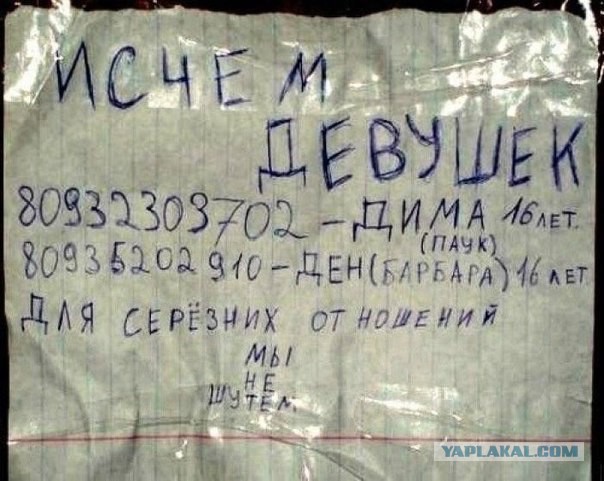 ИСЧЕМ
ДЕВУШЕК
80932309702 - ДИМА 16 ЛЕТ.
(ПАУК)
80935202910 - ДЕН (БАРБАРА) 16 ЛЕТ
ДЛЯ СЕРЁЗНИХ ОТНОШЕНИЙ
МЫ
НЕ
ШУТЕМ.
YAPLAKAL.COM